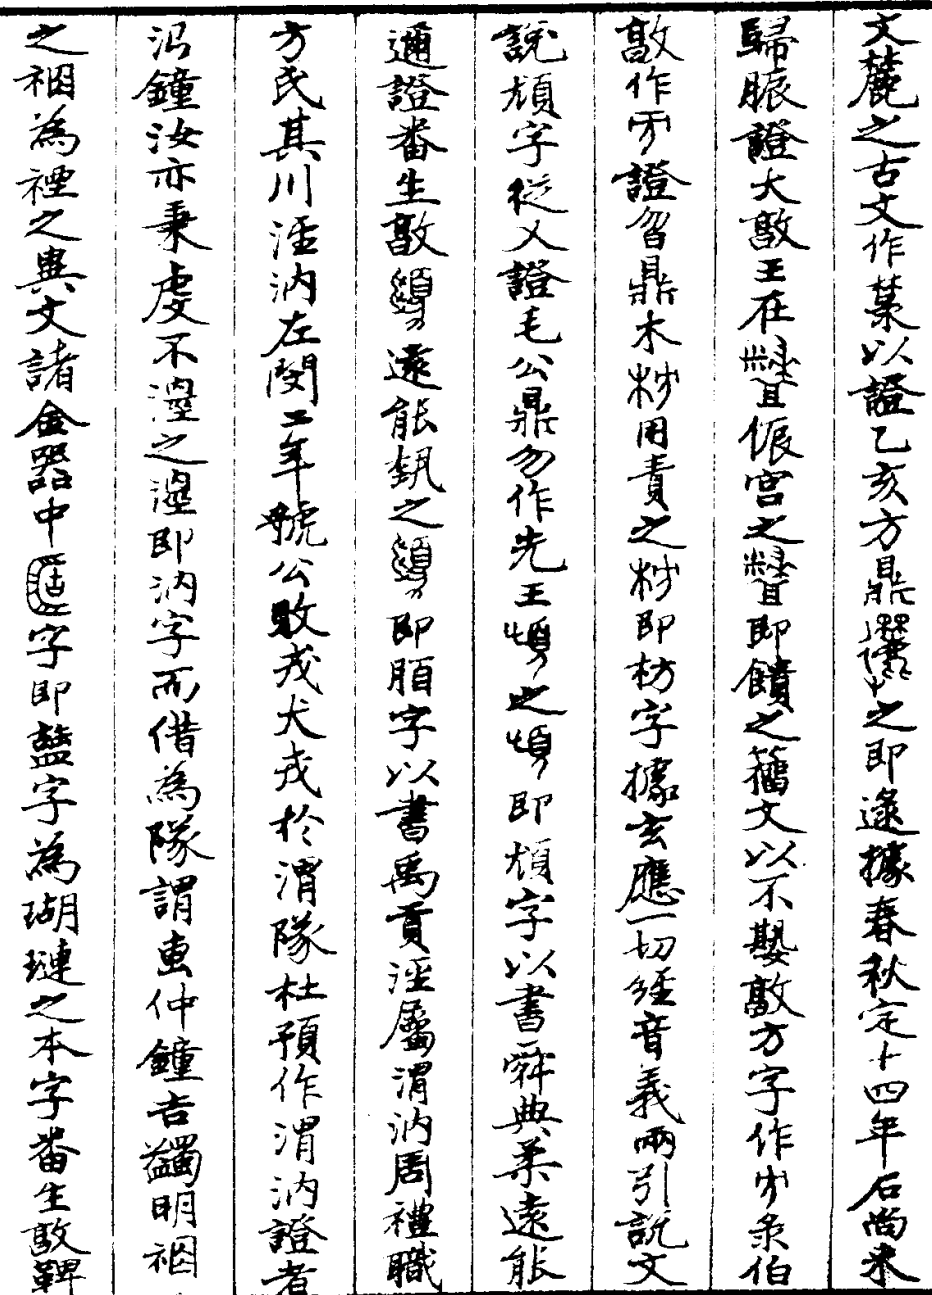 文麓之古文作䔲以證乙亥方鼎之即逯據春秋定十四年石尚來
歸脤證大敦王在侲宮之即饋之籀文以不嬰敦方字作录伯
敦作證曶鼎木用責之即枋字據玄應一切經音義兩引說文
說頫字從乂證毛公鼎勿作先王之即頫字以書舜典柔遠能
邇證番生敦遠能之即脜字以書禹貢涇屬渭汭周禮職
方氏其川涇汭左閔二年虢公敗戎犬戎於渭隊杜預作渭汭證者
汈鐘汝亦秉虔不之即汭字而借為隊謂䖵仲鐘吉蠲明䄄
之䄄為禋之異文諸金器中字即盬字為瑚璉之本字番生敦鞞